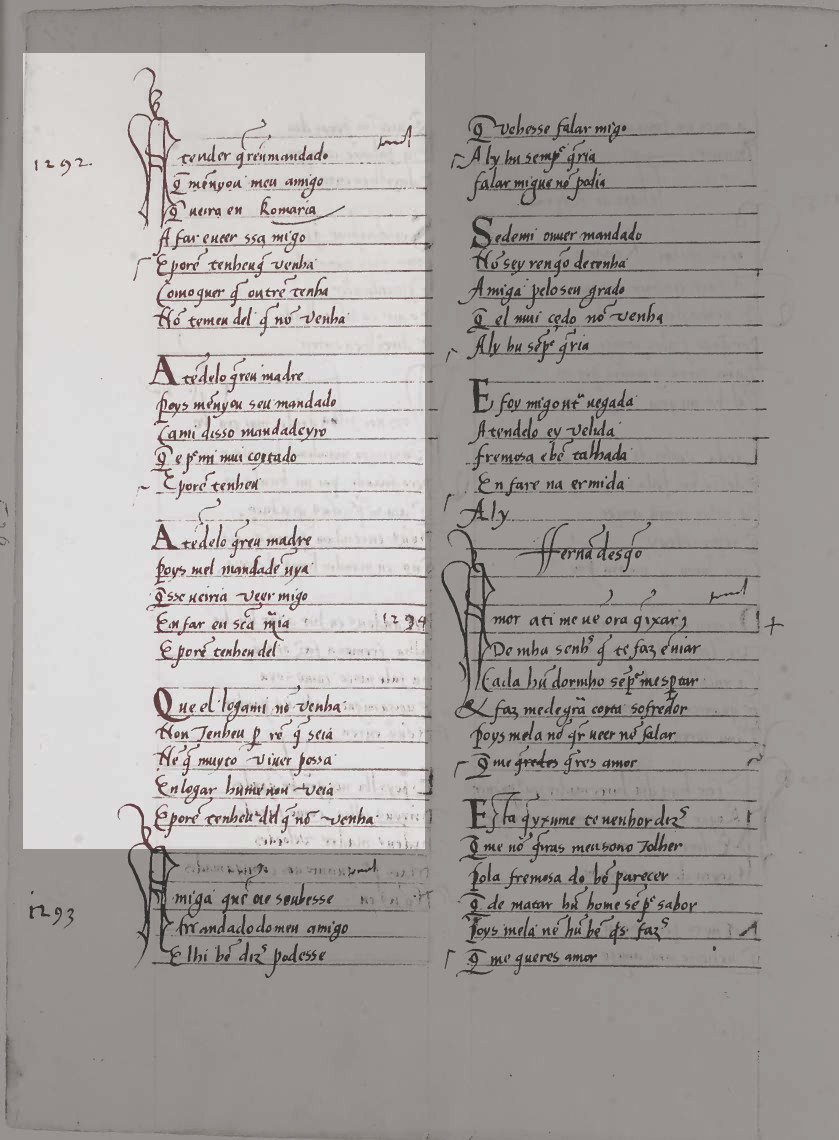 1292.
Atender q̄reu mandado
Q̄ mēuyou meu amigo
Q̄ ueira en Romaria
A far eueer ssa migo
E porē tenheu q̄ venha
Como quer q̄ outrē tenha
Nō temeu del q̄ nō venha
A tēdelo q̄reu madre
Poys mēuyou seu mandado
Ca mi disso mandadeyro
Q̄ e p̄ mi mui coytado
E porē tenheu
A tēdelo q̄reu madre
Poys mel mandade uya
Q̄sse ueiria veer migo
En far en scā m̄ia
1294
E porē tenheu del
Que el logami nō venha
Non Jenheu p̄ rē q̄ seia
Nē q̄ muyto viuer possa
En logar hume nou veia
E porē tenheu del q̄ nō venha
1293
Amiga quē oie soubesse
Mandado do meu amigo
E lhi bē diz̄ podesse
Q̄ vehesse falar migo
Aly hu semp̄ q̄ria
Falar migue nō podia
Se de mi ouuer mandado
Nō sey ren q̄o detenha
Amiga pelo seu grado
Q̄ el mui cedo nō venha
Aly hu sēp̄ q̄ria
E foy migo ut̄ uegada
Atendelo ey velida
Fremosa e bē talhada
En fare na ermida
Aly
Fernā desq̄o
Amor a ti me uē ora q̄ixar
De mha senh̄ q̄ te faz ēuiar
Cada hu dormho sēp̄ mespertar
E faz me de grā coyta sofredor
Poys mela nō q̄r ueer nē falar
Q̄ me q̄redes q̄res amor
Esta q̄yxume te uenhor diz̄
Q̄ me nō q̄iras meu sono Tolher
Pola fremosa do bō parecer
Q̄ de matar hū home sēp̄ sabor
Poys mela nē hū bē q̄s faz̄
Q̄ me queres amor